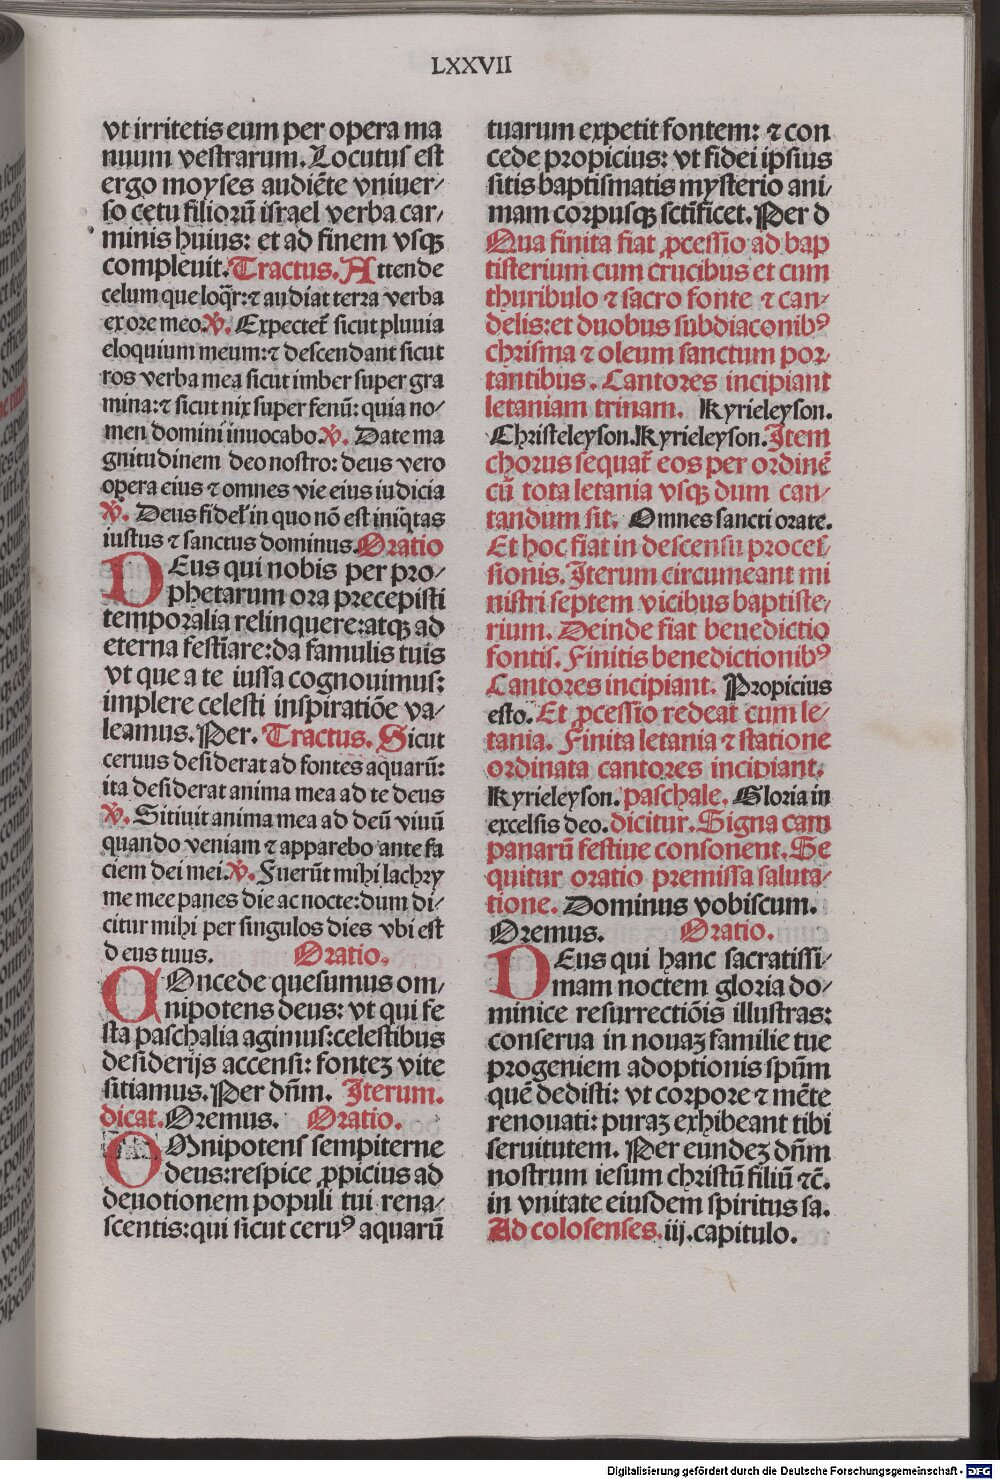 LXXVII
vt irritetis eum per opera ma
nuum vestrarum. Locutus est
ergo moyses audiēte vniuer⸗
so cetu filiorū israel verba car⸗
minis huius: et ad finem vsqꝫ
compleuit. Tractus. Attende
celum que loqr̄: ⁊ audiat terra verba
ex ore meo. ℣. Expectet̄ sicut pluuia
eloquium meum: ⁊ descendant sicut
ros verba mea sicut imber super gra
mina: ⁊ sicut nix super fenū: quia no⸗
men domini inuocabo. ℣. Date ma
gnitudinem deo nostro: deus vero
opera eius ⁊ omnes vie eius iudicia
℣. Deus fidel̄ in quo nō est iniq̄tas
iustus ⁊ sanctus dominus. Oratio
DEus qui nobis per pro⸗
phetarum ora precepisti
temporalia relinquere: atqꝫ ad
eterna festīare: da famulis tuis
vt que a te iussa cognouimus:
implere celesti inspiratiōe va⸗
leamus. Per. Tractus. Sicut
ceruus desiderat ad fontes aquarū:
ita desiderat anima mea ad te deus
℣. Sitiuit anima mea ad deū viuū
quando veniam ⁊ apparebo ante fa
ciem dei mei. ℣. Fuerūt mihi lachry
me mee panes die ac nocte: dum di⸗
citur mihi per singulos dies vbi est
deus tuus. Oratio.
COncede quesumus om⸗
nipotens deus: vt qui fe
sta paschalia agimus: celestibus
desiderijs accensi: fonteꝫ vite
sitiamus. Per dn̄m. Iterum.
dicat. Oremus. Oratio.
OMnipotens sempiterne
deus: respice ꝓpicius ad
deuotionem populi tui rena⸗
scentis: qui sicut ceruꝰ aquarū
tuarum expetit fontem: ⁊ con
cede propicius: vt fidei ipsius
sitis baptismatis mysterio ani⸗
mam corpusqꝫ sctīficet. Per d
Qua finita fiat ꝓcessio ad bap
tisterium cum crucibus et cum
thuribulo ⁊ sacro fonte ⁊ can⸗
delis: et duobus subdiaconibꝰ
chrisma ⁊ oleum sanctum por⸗
tantibus. Cantores incipiant
letaniam trinam. Kyrieleyson.
Christeleyson. Kyrieleyson. Item
chorus sequat̄ eos per ordinē
cū tota letania vsqꝫ dum can⸗
tandum sit. Omnes sancti orate.
Et hoc fiat in descensu proces⸗
sionis. Iterum circumeant mi
nistri septem vicibus baptiste⸗
rium. Deinde fiat benedictio
fontis. Finitis benedictionibꝰ
Cantores incipiant. Propicius
esto. Et ꝓcessio redeat cum le⸗
tania. Finita letania ⁊ statione
ordinata cantores incipiant.
Kyrieleyson. paschale. Gloria in
excelsis deo. dicitur. Signa cam
panarū festiue consonent. Se
quitur oratio premissa saluta⸗
tione. Dominus vobiscum.
Oremus. Oratio.
DEus qui hanc sacratissi⸗
mam noctem gloria do⸗
minice resurrectiōis illustras:
conserua in nouaꝫ familie tue
progeniem adoptionis spūm
quē dedisti: vt corpore ⁊ mēte
renouati: puraꝫ exhibeant tibi
seruitutem. Per eundeꝫ dn̄m
nostrum iesum christū filiū ⁊c̄.
in vnitate eiusdem spiritus sa.
Ad colosenses. iij. capitulo.
Digitalisierung gefördert durch die Deutsche Forschungsgemeinschaft - DFG